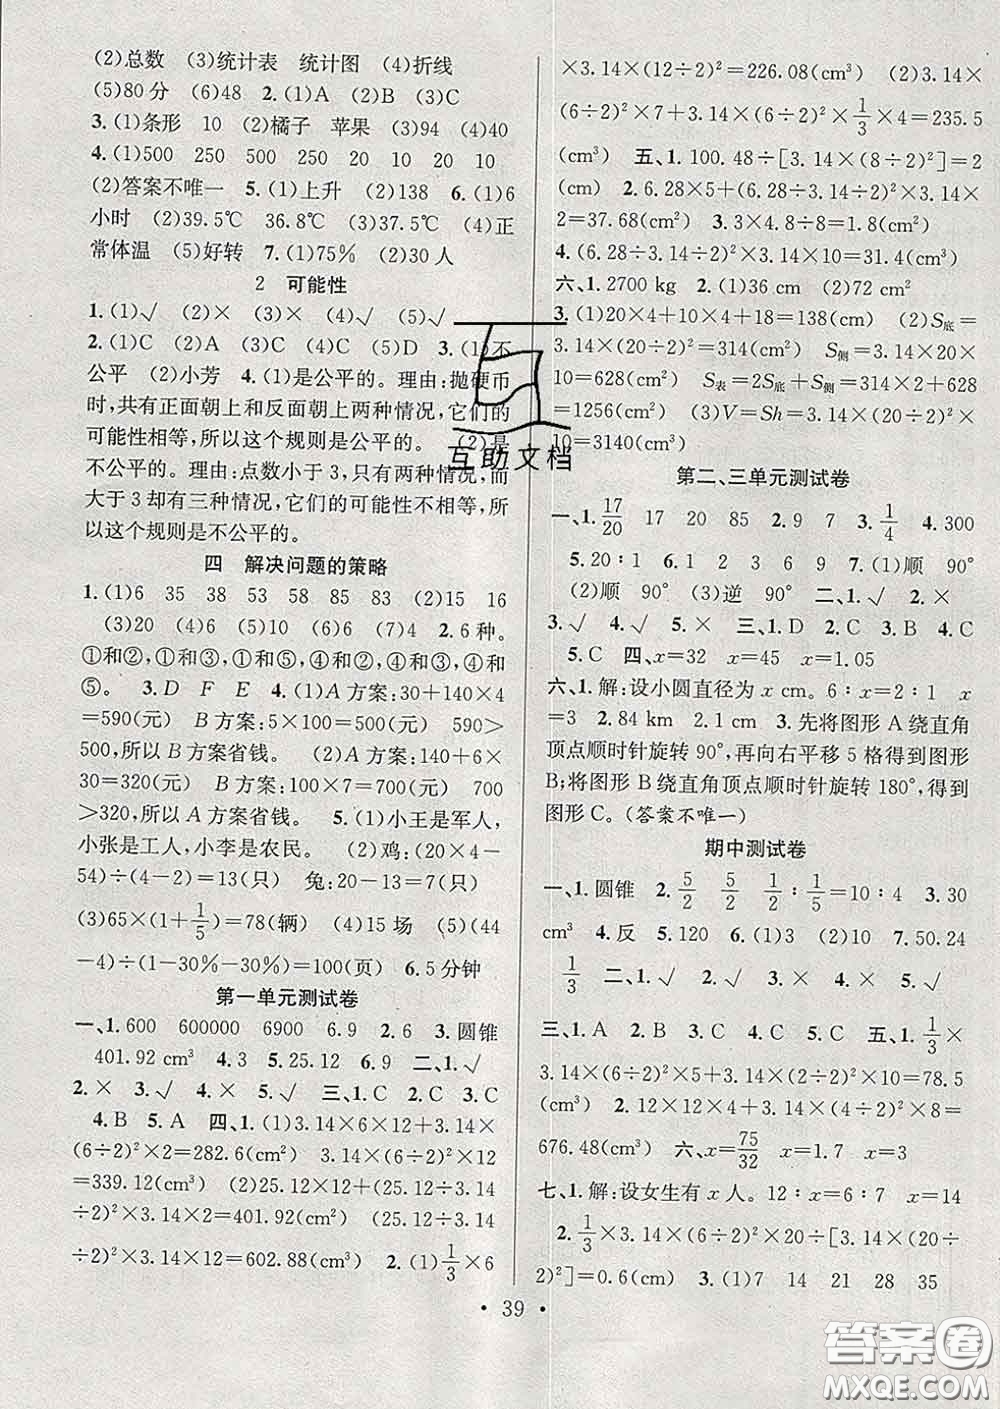 (2)总数 (3)统计表 统计图 (4)折线
(5)80分 (6)48 2.(1)A (2)B (3)C
3.(1)条形 10 (2)橘子 苹果 (3)94 (4)40
4.(1)500 250 500 250 20 10 20 10
(2)答案不唯一 5.(1)上升 (2)138 6.(1)6
小时 (2)39.5℃ 36.8℃ (3)37.5℃ (4)正
常体温 (5)好转 7.(1)75% (2)30人
2 可能性
1.(1)√ (2)× (3)× (4)√ (5)√
2.(1)C (2)A (3)C (4)C (5)D 3.(1)不
公平 (2)小芳 4.(1)是公平的。理由:抛硬币
时,共有正面朝上和反面朝上两种情况,它们的
可能性相等,所以这个规则是公平的。 (2)是
不公平的。理由:点数小于3,只有两种情况,而
大于3却有三种情况,它们的可能性不相等,所
以这个规则是不公平的。
四 解决问题的策略
1.(1)6 35 38 53 58 85 83 (2)15 16
(3)20 (4)6 (5)10 (6)6 (7)4 2.6种。
①和②,①和③,①和⑤,④和②,④和③,④和
⑤。 3.D F E 4.(1)A方案:30+140×4
=590(元) B方案:5×100=500(元) 590>
500,所以B方案省钱。 (2)A方案:140+6×
30=320(元) B方案:100×7=700(元) 700
>320,所以A方案省钱。 5.(1)小王是军人,
小张是工人,小李是农民。 (2)鸡:(20×4-
54)÷(4-2)=13(只) 兔:20-13=7(只)
(3)65×(1+1/5)=78(辆) (4)15场 (5)(44
-4)÷(1-30%-30%)=100(页) 6.5分钟
第一单元测试卷
一、1.600 600000 6900 6.9 2.6 3.圆锥
401.92 cm³ 4.3 5.25.12 6.9 二、1.√
2.× 3.√ 4.√ 5.√ 三、1.C 2.C 3.C
4.B 5.A 四、1.(1)3.14×6×12+3.14×
(6÷2)²×2=282.6(cm²) 3.14×(6÷2)²×12
=339.12(cm³) (2)25.12×12+(25.12÷3.14
÷2)²×3.14×2=401.92(cm²) (25.12÷3.14
÷2)²×3.14×12=602.88(cm³) 2.(1)1/3×6
×3.14×(12÷2)²=226.08(cm³) (2)3.14×
(6÷2)²×7+3.14×(6÷2)²×1/3×4=235.5
(cm³) 五、1.100.48÷[3.14×(8÷2)²]=2
(cm) 2.6.28×5+(6.28÷3.14÷2)²×3.14
×2=37.68(cm²) 3.3×4.8÷8=1.8(cm²)
4.(6.28÷3.14÷2)²×3.14×10=31.4(cm³)
六、1.2700 kg 2.(1)36 cm (2)72 cm²
3.(1)20×4+10×4+18=138(cm) (2)S底=
3.14×(20÷2)²=314(cm²) S侧=3.14×20×
10=628(cm²) S表=2S底+S侧=314×2+628
=1256(cm²) (3)V=Sh=3.14×(20÷2)²×
10=3140(cm³)
第二、三单元测试卷
一、1.17/20 17 20 85 2.9 7 3.1/4 4.300
5.20∶1 6.1 2 3 6 9 7.(1)顺 90°
(2)顺 90° (3)逆 90° 二、1.√ 2.×
3.√ 4.√ 5.× 三、1.D 2.C 3.B 4.C
5.C 四、x=32 x=45 x=1.05
六、1.解:设小圆直径为x cm。6∶x=2∶1 x
=3 2.84 km 2.1 cm 3.先将图形A绕直角
顶点顺时针旋转90°,再向右平移5格得到图形
B;将图形B绕直角顶点顺时针旋转180°,得到
图形C。(答案不唯一)
期中测试卷
一、1.圆锥 2.5/2 5/2 1/2∶1/5=10∶4 3.30
cm³ 4.反 5.120 6.(1)3 (2)10 7.50.24
1/3 二、1.√ 2.√ 3.× 4.× 5.√
三、1.A 2.B 3.C 4.C 5.C 五、1.1/3×
3.14×(6÷2)²×5+3.14×(6÷2)²×1=78.5
(cm³) 2.12×12×12-3.14×(12÷2)²×8=
676.48(cm³) 六、x=75/32 x=1.8 x=3
七、1.解:设女生有x人。12∶x=6∶7 x=14
2.1/3×3.14×(6÷2)²×20÷[3.14×(20÷
2)²]=0.6(cm) 3.(1)7 14 21 28 35
• 39 •
互助文档
答案圈
MXQE.COM